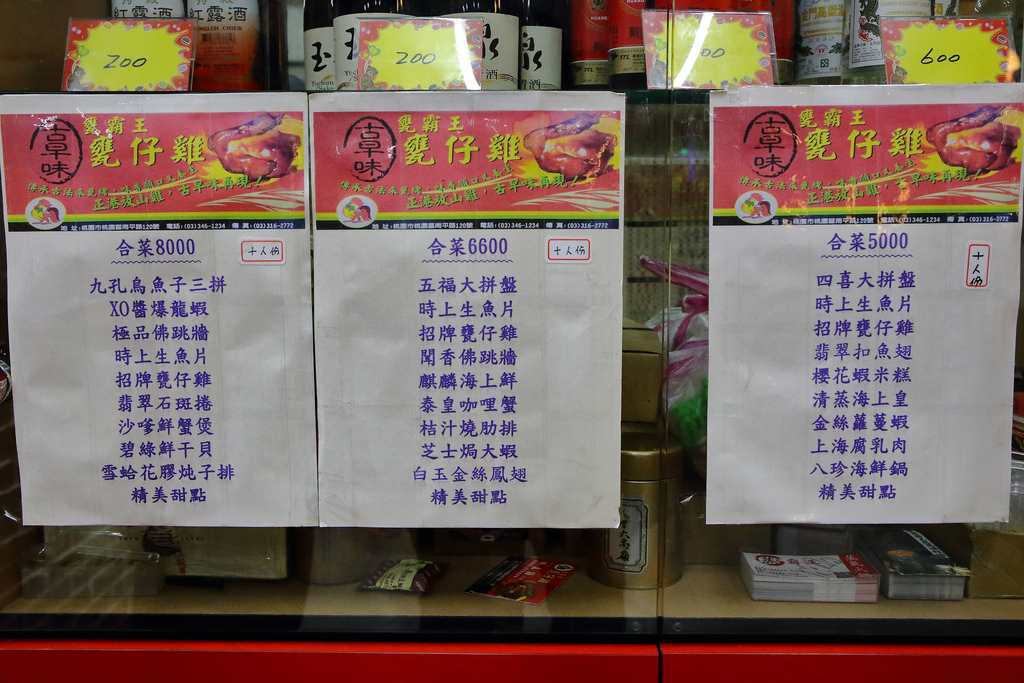 紅露酒
紅露酒
玉
泉
酒
TTL
TTL
200
200
00
600
古早味
甕霸王
甕仔雞
正港放山雞，古早味再現！
地址:桃園市桃園區南平路120號 電話:(03)346-1234 傳真:(03)316-2772
合菜8000
十人份
九孔烏魚子三拼
XO醬爆龍蝦
極品佛跳牆
時上生魚片
招牌甕仔雞
翡翠石斑捲
沙嗲鮮蟹煲
碧綠鮮干貝
雪蛤花膠炖子排
精美甜點
古早味
甕霸王
甕仔雞
正港放山雞，古早味再現！
地址:桃園市桃園區南平路120號 電話:(03)346-1234 傳真:(03)316-2772
合菜6600
十人份
五福大拼盤
時上生魚片
招牌甕仔雞
聞香佛跳牆
麒麟海上鮮
泰皇咖哩蟹
桔汁燒肋排
芝士焗大蝦
白玉金絲鳳翅
精美甜點
古早味
甕霸王
甕仔雞
正港放山雞，古早味再現！
地址:桃園市桃園區南平路120號 電話:(03)346-1234 傳真:(03)316-2772
合菜5000
十人份
四喜大拼盤
時上生魚片
招牌甕仔雞
翡翠扣魚翅
櫻花蝦米糕
清蒸海上皇
金絲蘿蔓蝦
上海腐乳肉
八珍海鮮鍋
精美甜點